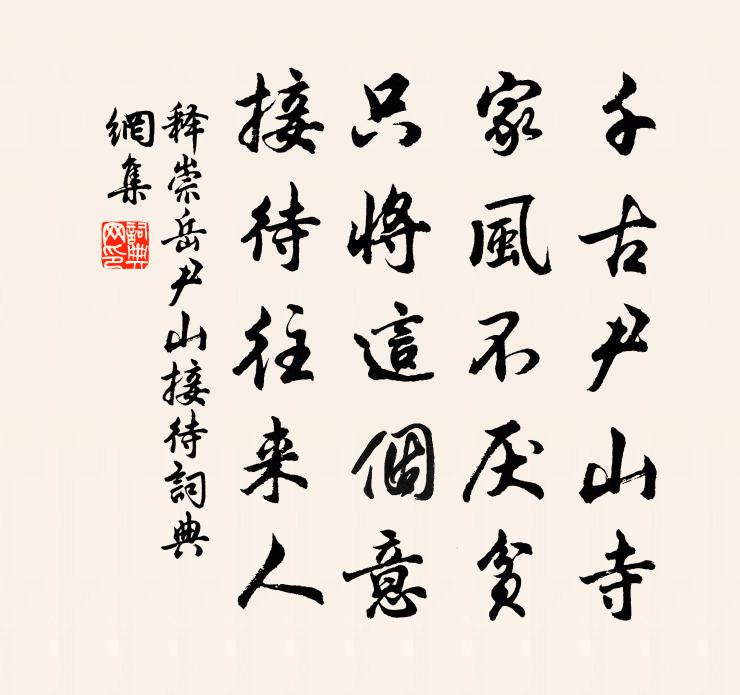 千古尹山寺
家風不厌貧
只將這個意
接待往来人
释崇岳尹山接待詞典
網集
詞典网印